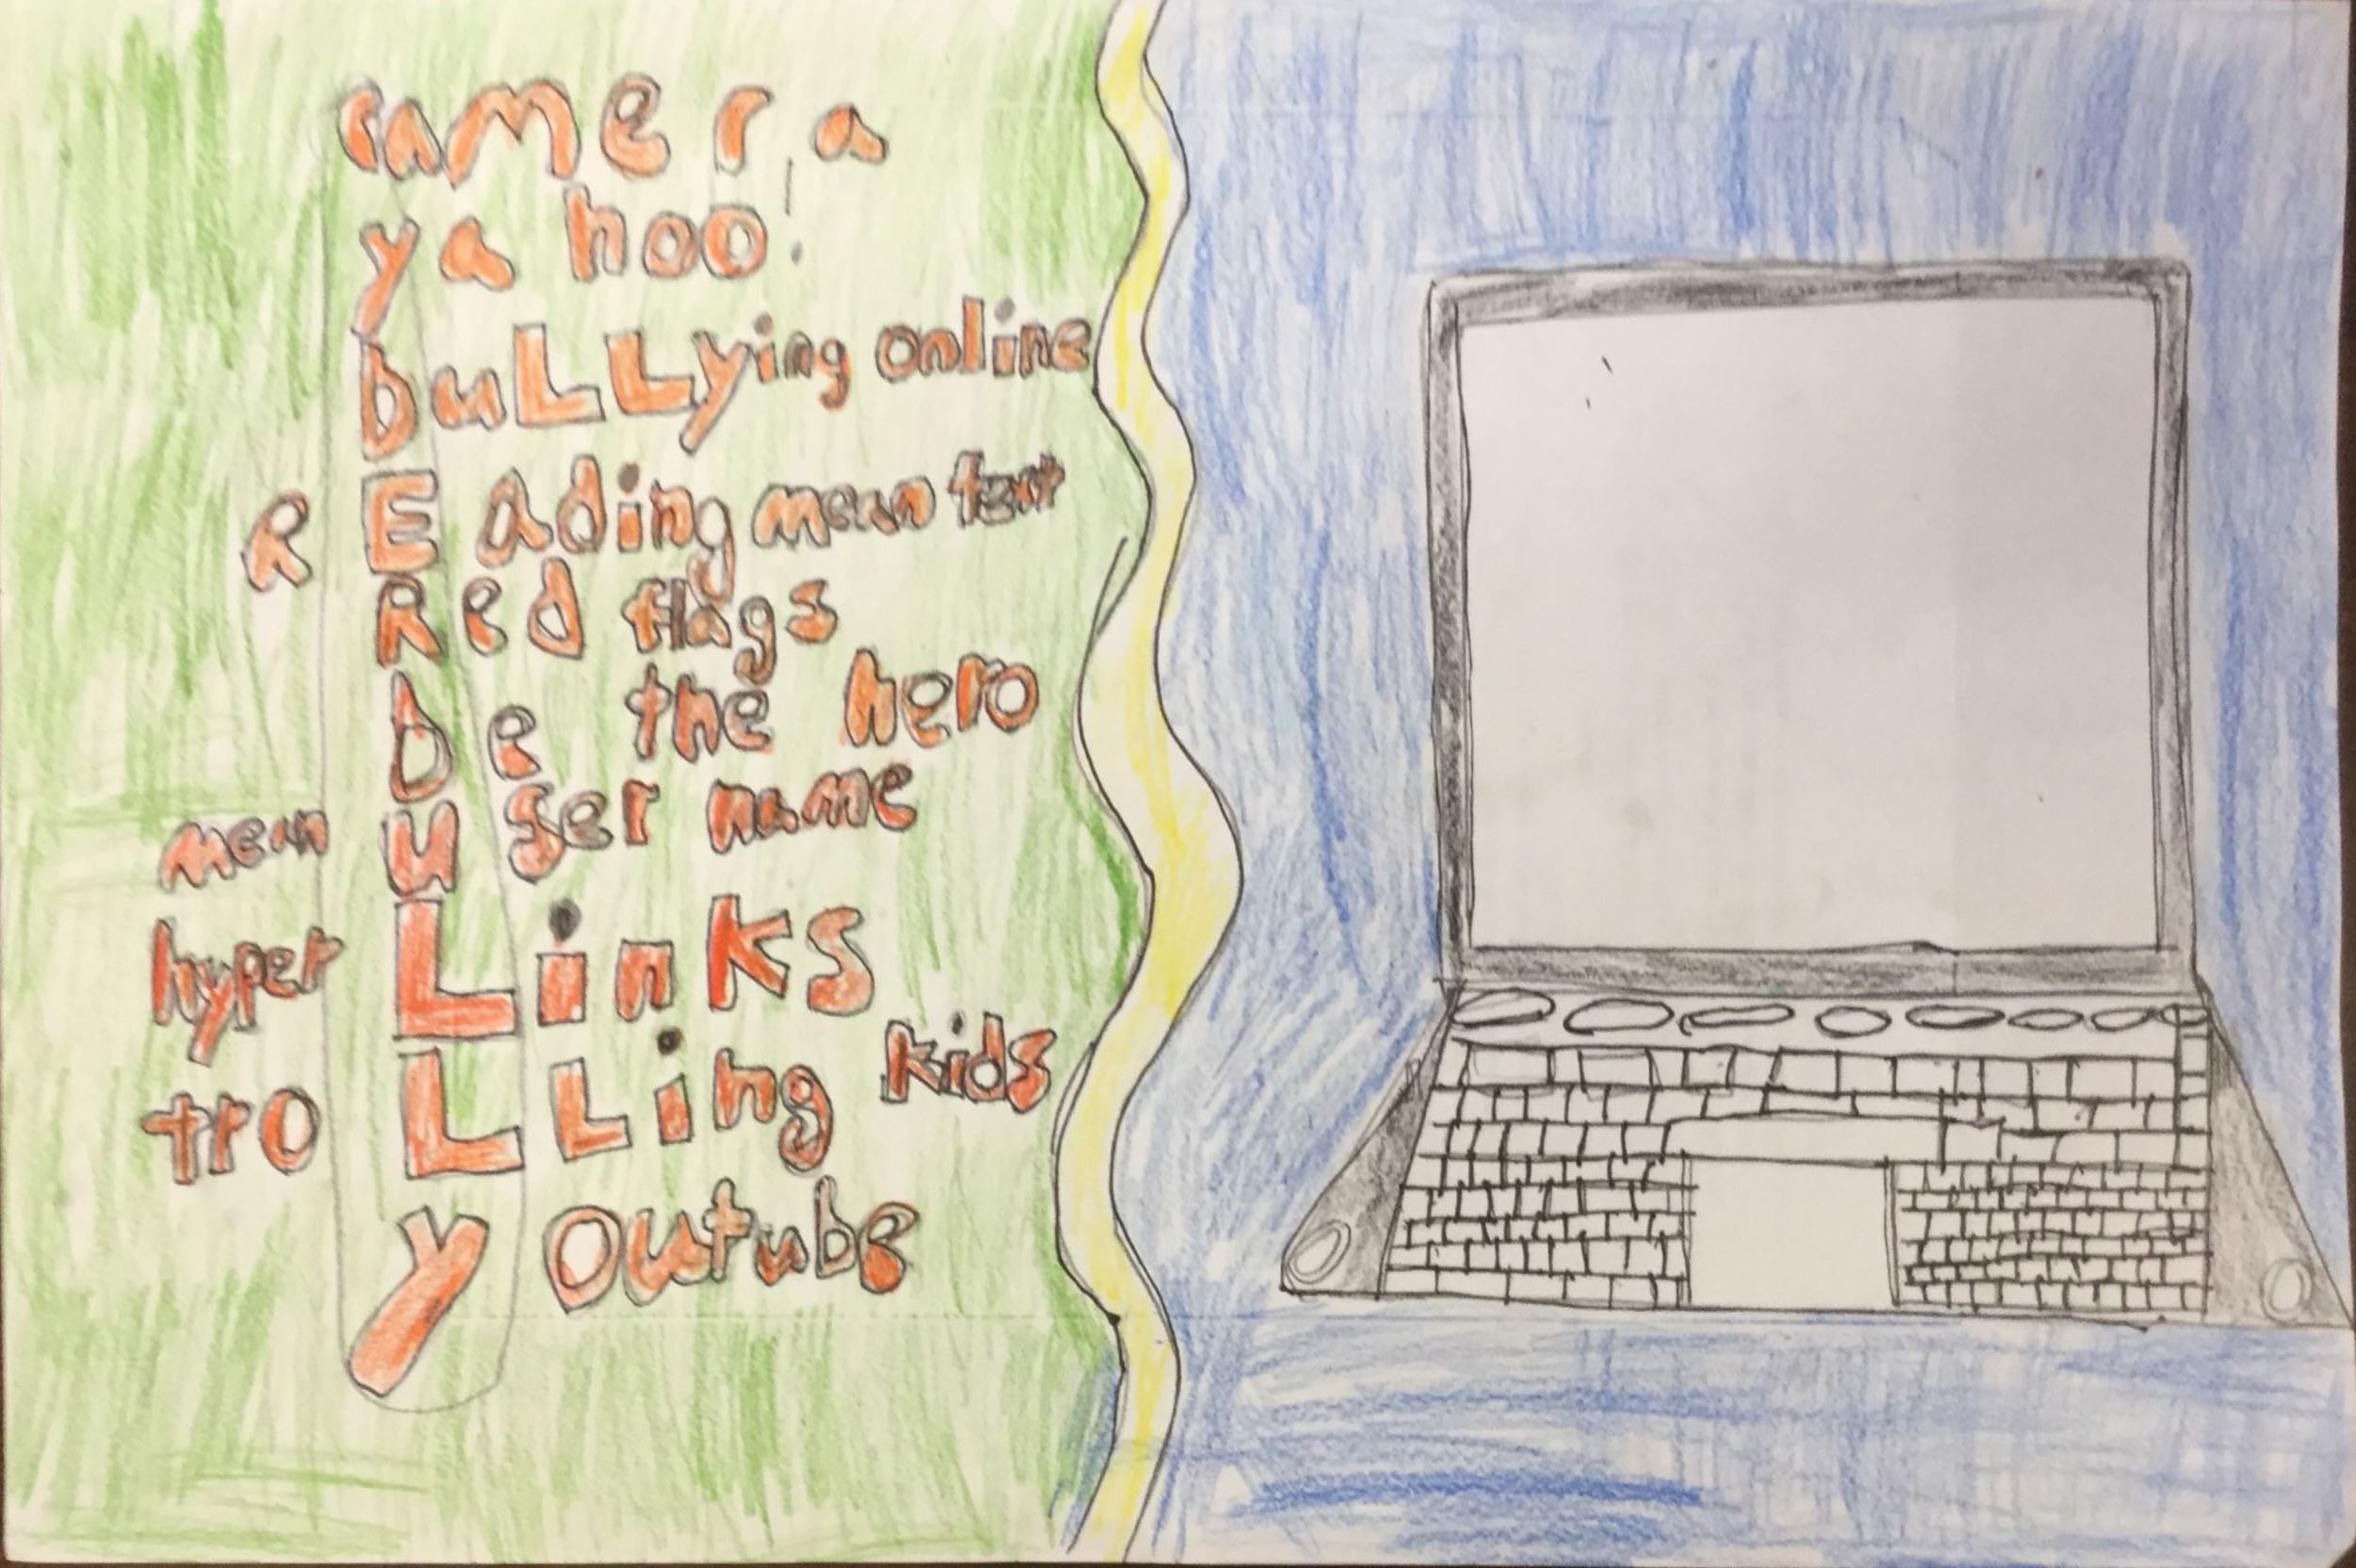 camera
yahoo!
buLLying online
REading mean text
Red flags
be the hero
mean user name
hyper Links
troLLing kids
Youtube